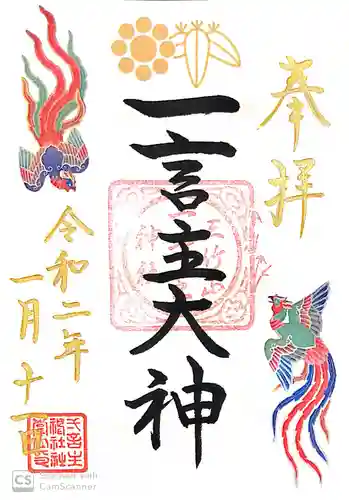 奉拝
一言主大神
令和二年
一月十一日
CS
Scanned with
CamScanner